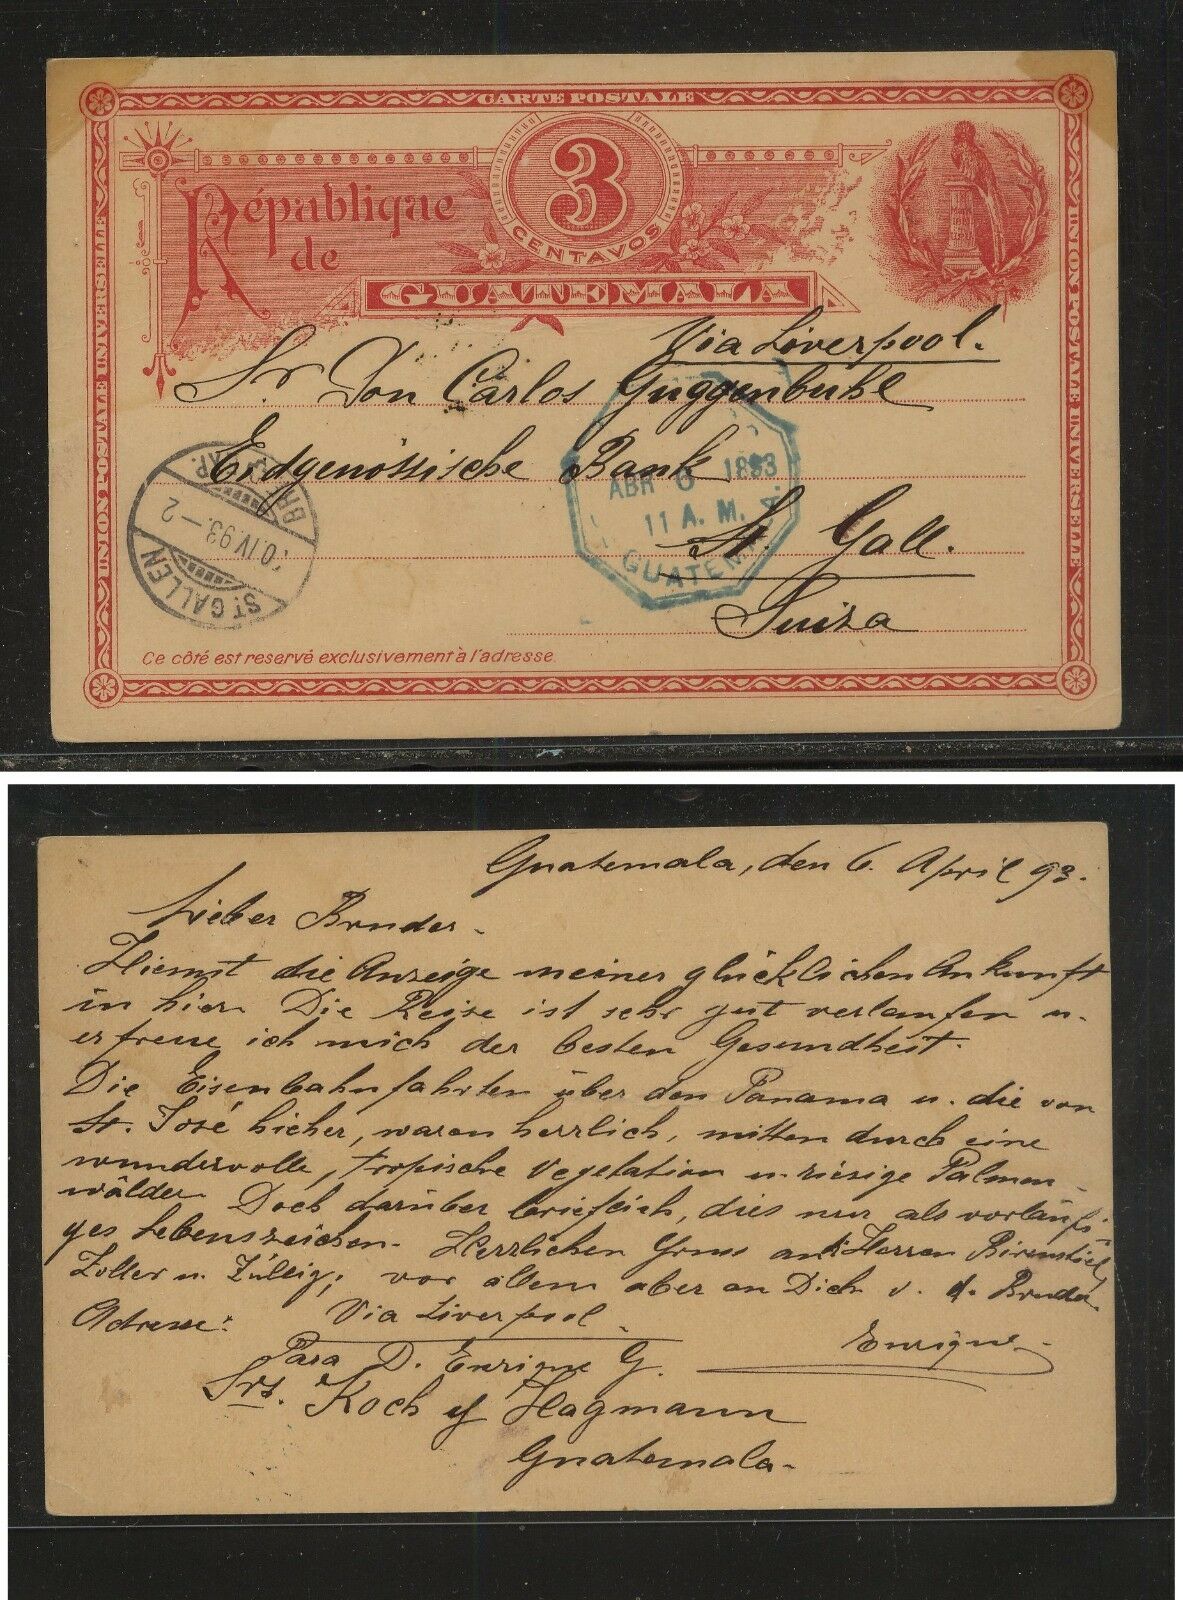 CARTE POSTALE
UNION POSTALE UNIVERSELLE
UNION POSTALE UNIVERSELLE
République
de
3
CENTAVOS
GUATEMALA
Via Liverpool.
Sr. Don Carlos Guggenbühl
Eidgenössische Bank
St. Gall.
Suiza
ABR 6 1893
11 A. M.
GUATEMALA
ST. GALLEN
10.IV.93.–2
Ce côté est reservé exclusivement à l'adresse.
Guatemala, den 6. April 93.
Lieber Bruder.
Hiemit die Anzeige meiner glücklichen Ankunft
in hier. Die Reise ist sehr gut verlaufen u.
erfreue ich mich der besten Gesundheit.
Die Eisenbahnfahrten über den Panama u. die von
St. José hieher, waren herrlich, mitten durch eine
wundervolle, tropische Vegetation u. riesige Palmen-
wälder. Doch darüber brieflich, dies nur als vorläufi-
ges Lebenszeichen. Herzlichen Gruss an Herren Birenstiel,
Zoller u. Züllig; vor allem aber an Dich v. d. Bruder
Adresse: Via Liverpool
Enrique
Para D. Enrique G.
Srs. Koch y Hagmann
Guatemala.